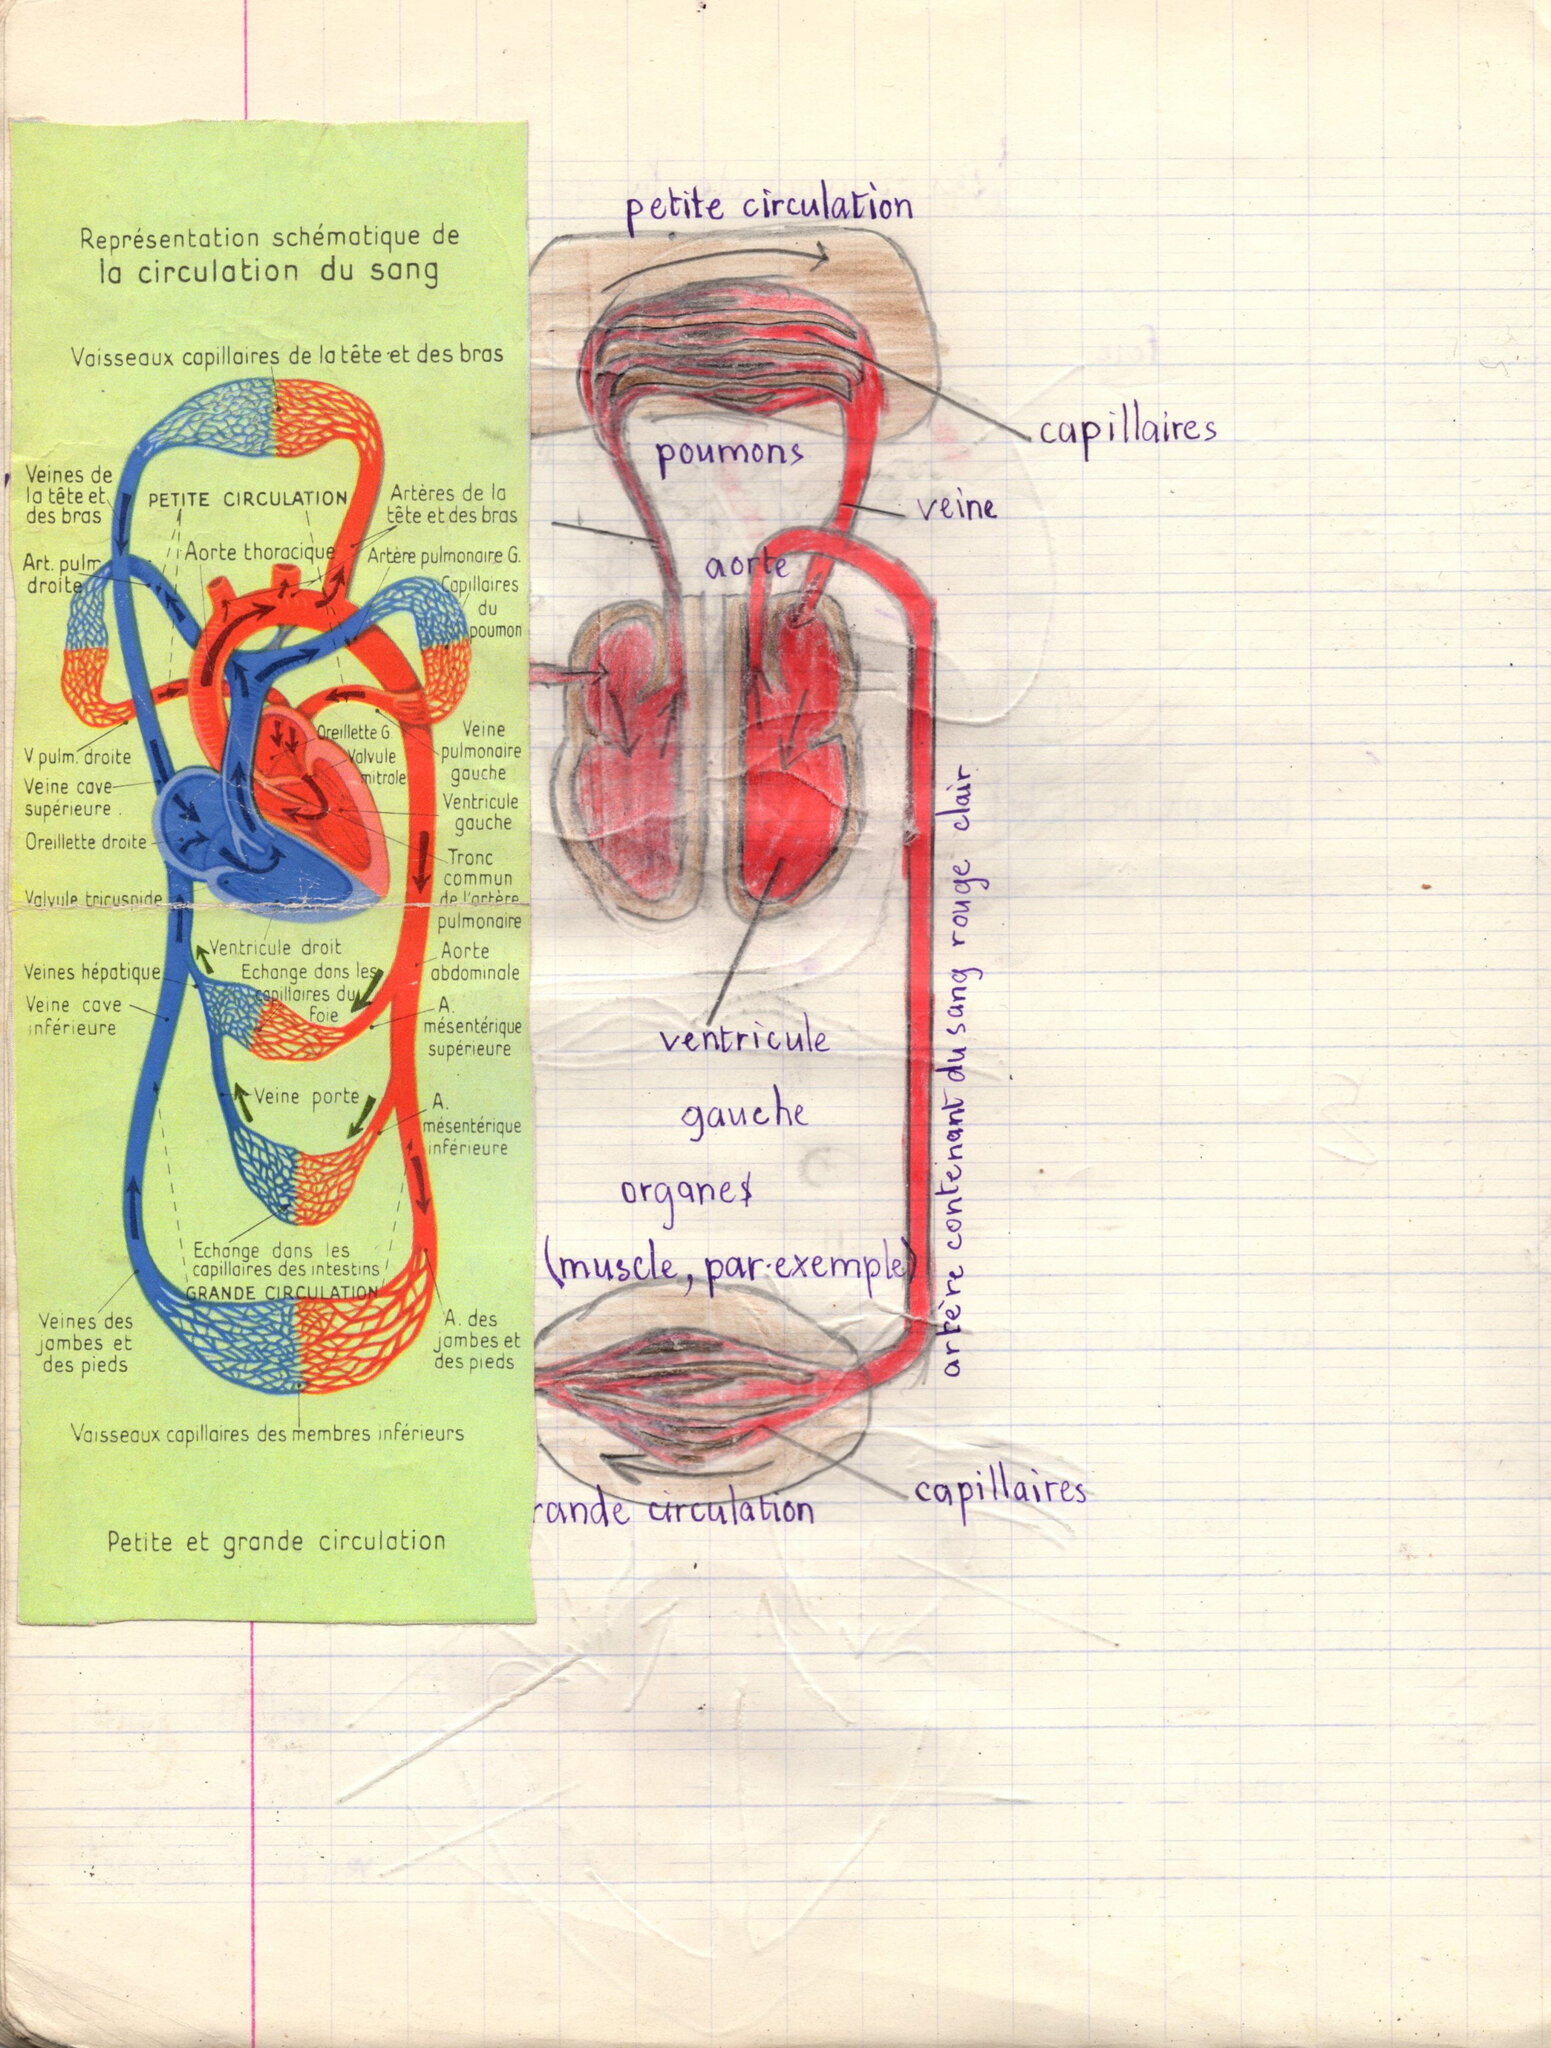 Représentation schématique de
la circulation du sang
Vaisseaux capillaires de la tête et des bras
Veines de
la tête et
des bras
PETITE CIRCULATION
Artères de la
tête et des bras
Art. pulm.
droite
Aorte thoracique
Artère pulmonaire G.
Capillaires
du
poumon
V pulm. droite
Oreillette G
Valvule
mitrale
Veine
pulmonaire
gauche
Veine cave
supérieure.
Ventricule
gauche
Oreillette droite
Tronc
commun
de l'artère
pulmonaire
Valvule tricuspide
Ventricule droit
Veines hépatique
Echange dans les
capillaires du
Foie
Aorte
abdominale
Veine cave
inférieure
A.
mésentérique
supérieure
Veine porte
A.
mésentérique
inférieure
Echange dans les
capillaires des intestins
GRANDE CIRCULATION
Veines des
jambes et
des pieds
A. des
jambes et
des pieds
Vaisseaux capillaires des membres inférieurs
Petite et grande circulation
petite circulation
capillaires
poumons
veine
aorte
artère contenant du sang rouge clair
ventricule
gauche
organes
(muscle, par exemple)
capillaires
rande circulation